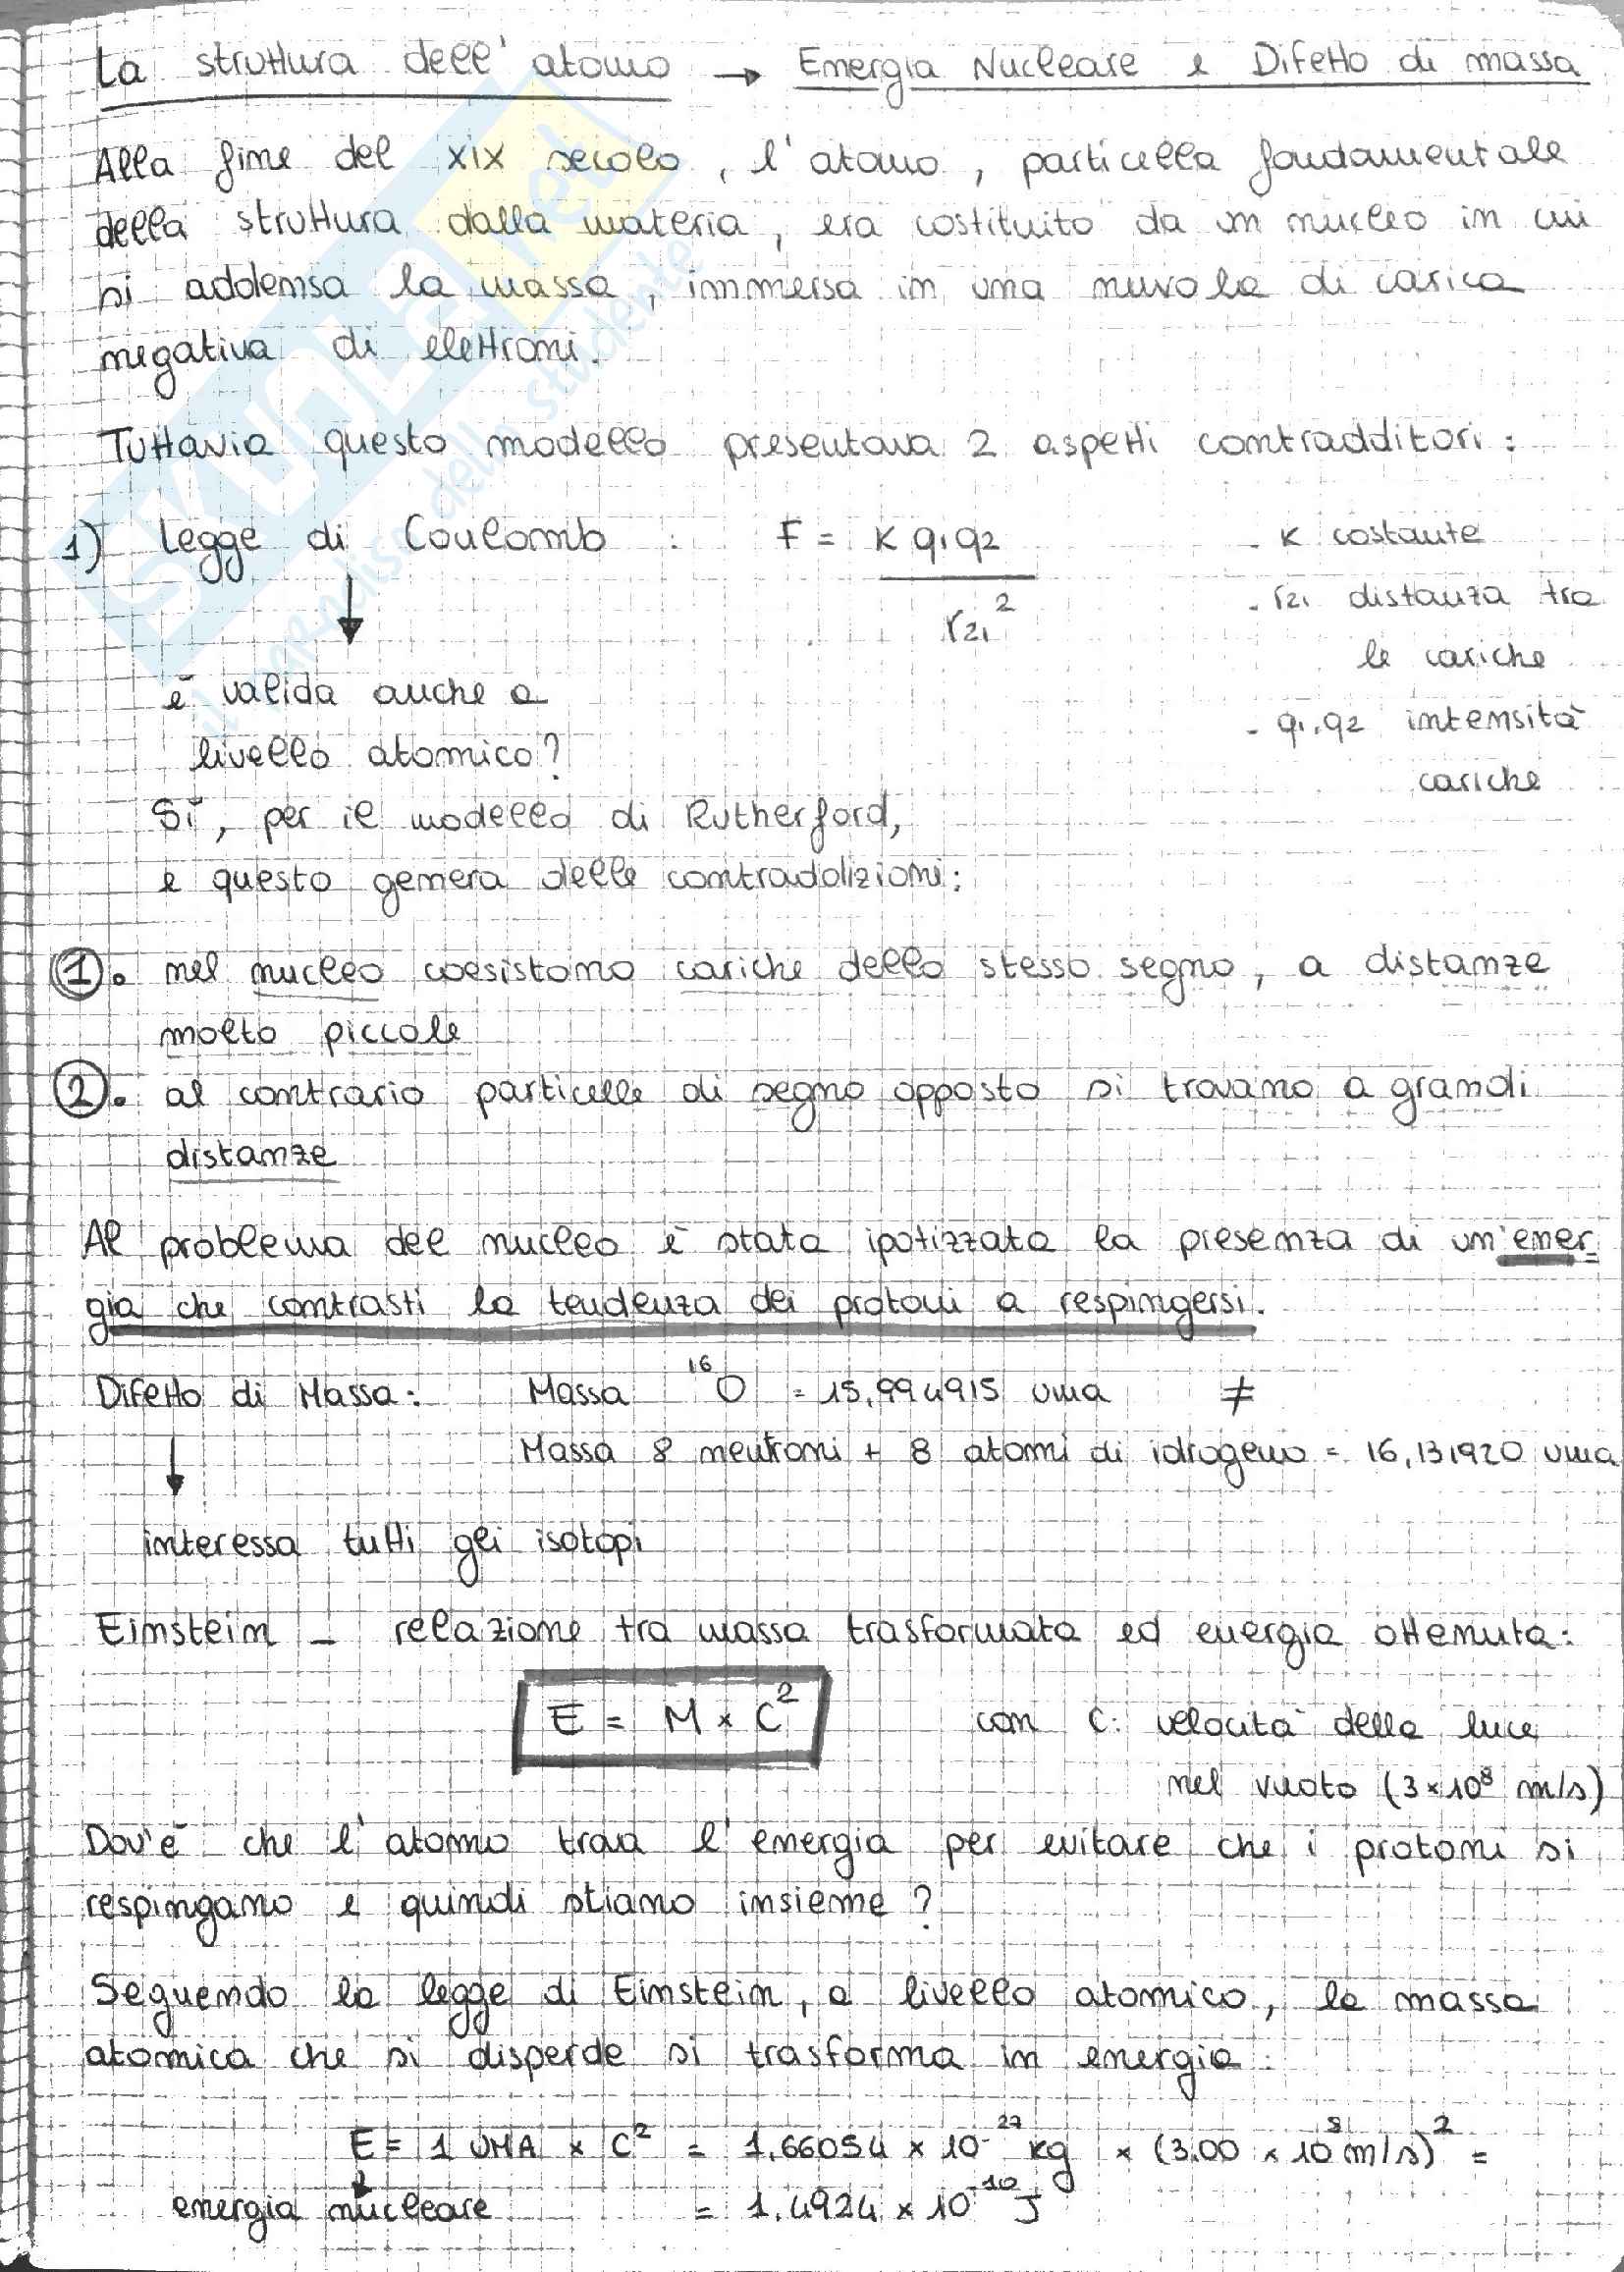 La struttura dell'atomo → Energia Nucleare e Difetto di massa
Alla fine del XIX secolo, l'atomo, particella fondamentale
della struttura dalla materia, era costituito da un nucleo in cui
si addensa la massa, immersa in una nuvola di carica
negativa di elettroni.
Tuttavia questo modello presentava 2 aspetti contradditori:
1) Legge di Coulomb : F = K q1 q2 / r21² - K costante
- r21 distanza tra
le cariche
è valida anche a
- q1, q2 intensità
livello atomico?
cariche
Sì, per il modello di Rutherford,
e questo genera delle contraddizioni:
1. nel nucleo coesistono cariche dello stesso segno, a distanze
molto piccole
2. al contrario particelle di segno opposto si trovano a grandi
distanze
Al problema del nucleo è stata ipotizzata la presenza di un'ener-
gia che contrasti la tendenza dei protoni a respingersi.
Difetto di Massa: Massa ¹⁶O = 15,994915 uma ≠
Massa 8 neutroni + 8 atomi di idrogeno = 16,131920 uma
interessa tutti gli isotopi
Einstein - relazione tra massa trasformata ed energia ottenuta:
E = M × C² con C: velocità della luce
nel vuoto (3×10⁸ m/s)
Dov'è che l'atomo trova l'energia per evitare che i protoni si
respingano e quindi stiano insieme?
Seguendo la legge di Einstein, a livello atomico, la massa
atomica che si disperde si trasforma in energia:
E = 1 UMA × C² = 1,66054 × 10⁻²⁷ kg × (3,00 × 10⁸ m/s)² =
energia nucleare = 1,4924 × 10⁻¹⁰ J
skuola.net
il paradiso dello studente